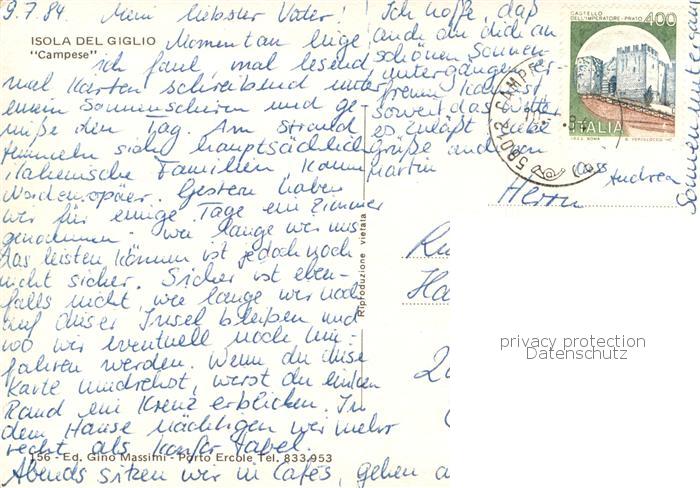 9.7.84 Mein liebster Vater!
ISOLA DEL GIGLIO
"Campese"
Momentan liege
ich faul, mal lesend
mal Karten schreibend unter
einem Sonnenschirm und ge-
nieße den Tag. Am Strand
tümmeln sich hauptsächlich
italienische Familien, kaum
Gestern haben
wir für einige Tage ein Zimmer
genommen. Wie lange wir uns
das leisten können ist jedoch noch
nicht sicher. Sicher ist eben-
falls nicht, wie lange wir noch
auf dieser Insel bleiben und
wo wir eventuell noch hin-
fahren werden. Wenn du diese
Karte umdrehst, wirst du am linken
Rand ein Kreuz erblicken. In
dem Hause nächtigen wir mehr
recht als komfortabel.
156 - Ed. Gino Massimi - Porto Ercole Tel. 833.953
Abends sitzen wir in Cafés, gehen a
Ich hoffe, daß
auch du dich an
schönen Sonnen-
untergängen er-
freuen kannst
soweit das Wetter
es zuläßt. Liebe
Grüße auch von
Martin
Andrea
Riproduzione vietata
CASTELLO
DELL'IMPERATORE-PRATO
400
ITALIA
58012 CAMPESE
Herrn
Ru
Ha
2
privacy protection
Datenschutz